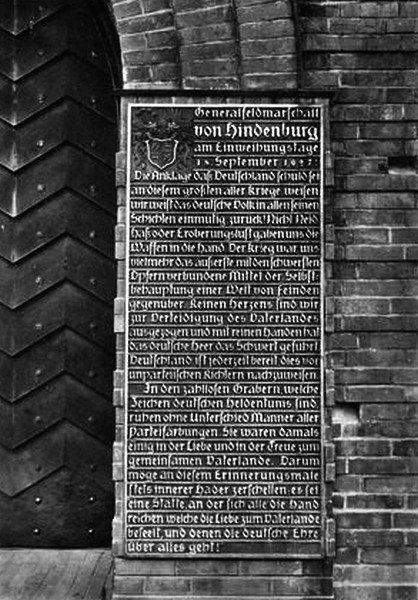 Generalfeldmarschall
von Hindenburg
am Einweihungstage
18. September 1927:
Die Anklage daß Deutschland schuld sei
an diesem größten aller Kriege, weisen
wir, weist das deutsche Volk in allen seinen
Schichten einmütig zurück! Nicht Neid
Haß oder Eroberungslust gaben uns die
Waffen in die Hand. Der Krieg war uns
vielmehr das äußerste mit den schwersten
Opfern verbundene Mittel der Selbst-
behauptung einer Welt von Feinden
gegenüber. Reinen Herzens sind wir
zur Verteidigung des Vaterlandes
ausgezogen und mit reinen Händen hat
das deutsche Heer das Schwert geführt.
Deutschland ist jederzeit bereit dies vor
unparteiischen Richtern nachzuweisen.
In den zahllosen Gräbern, welche
Zeichen deutschen Heldentums sind,
ruhen ohne Unterschied Männer aller
Parteifärbungen. Sie waren damals
einig in der Liebe und in der Treue zum
gemeinsamen Vaterlande. Darum
möge an diesem Erinnerungsmale
stets innerer Hader zerschellen: es sei
eine Stätte, an der sich alle die Hand
reichen welche die Liebe zum Vaterlande
beseelt, und denen die deutsche Ehre
über alles geht!